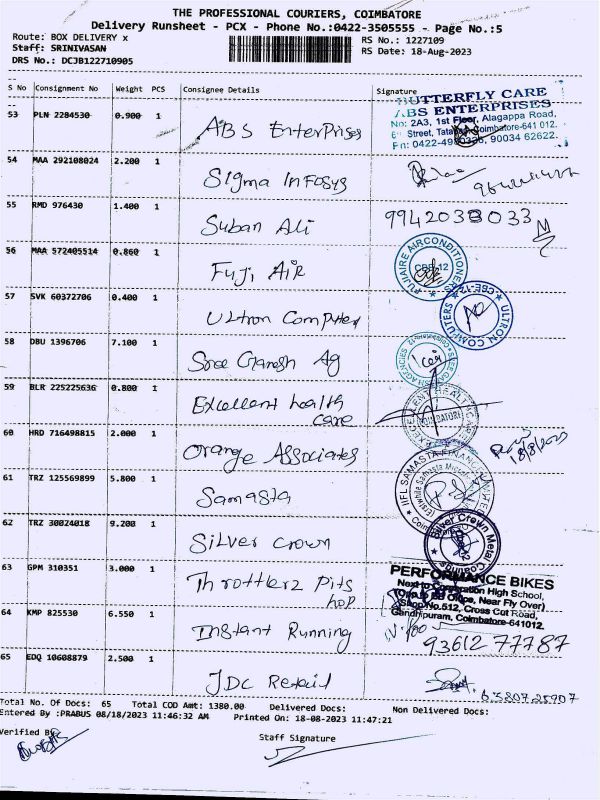 THE PROFESSIONAL COURIERS, COIMBATORE
Delivery Runsheet - PCX - Phone No.:0422-3505555 - Page No.:5
Route: BOX DELIVERY x
RS No.: 1227109
Staff: SRINIVASAN
RS Date: 18-Aug-2023
DRS No.: DCJB122710905
S No Consignment No Weight PCS Consignee Details Signature
53 PLN 2284530 0.900 1 ABS Enterprises
BUTTERFLY CARE
ABS ENTERPRISES
No: 2A3, 1st Floor, Alagappa Road,
Street, Coimbatore-641 012.
90034 62622.
54 MAA 292108024 2.200 1 Sigma Infosys
55 RMD 976430 1.400 1 Suban Ali 9942038033
56 MAA 572405514 0.860 1 Fuji Air
FUJIAIRE AIRCONDITIONERS
CBE-12
57 SVK 60372706 0.400 1 Ultron Computer
ULTRON COMPUTERS CBE-12
58 DBU 1396706 7.100 1 Sree Ganesh Ag
59 BLR 225225636 0.800 1 Excellent health
care
EXCELLENT HEALTHCARE
COIMBATORE
60 HRD 716498815 2.000 1 Orange Associates
18/8/2023
61 TRZ 125569899 5.800 1 Samasta
IIFL SAMASTA FINANCE LIMITED
62 TRZ 30024018 9.200 1 Silver Crown
Silver Crown Metal Casting
63 GPM 310351 3.000 1 Throttlerz Pits
hop
PERFORMANCE BIKES
Next to Corporation High School,
Near Fly Over)
Shop No.512, Cross Cut Road,
Gandhipuram, Coimbatore-641012.
64 KMP 825530 6.550 1 Instant Running
93612 77787
65 EDQ 10608879 2.500 1 JDC Retail
Total No. Of Docs: 65 Total COD Amt: 1380.00 Delivered Docs: Non Delivered Docs:
Entered By :PRABUS 08/18/2023 11:46:32 AM Printed On: 18-08-2023 11:47:21
Verified By
Staff Signature